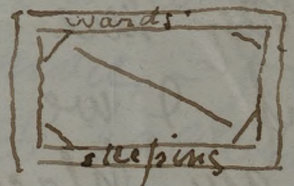 wards
sleeping